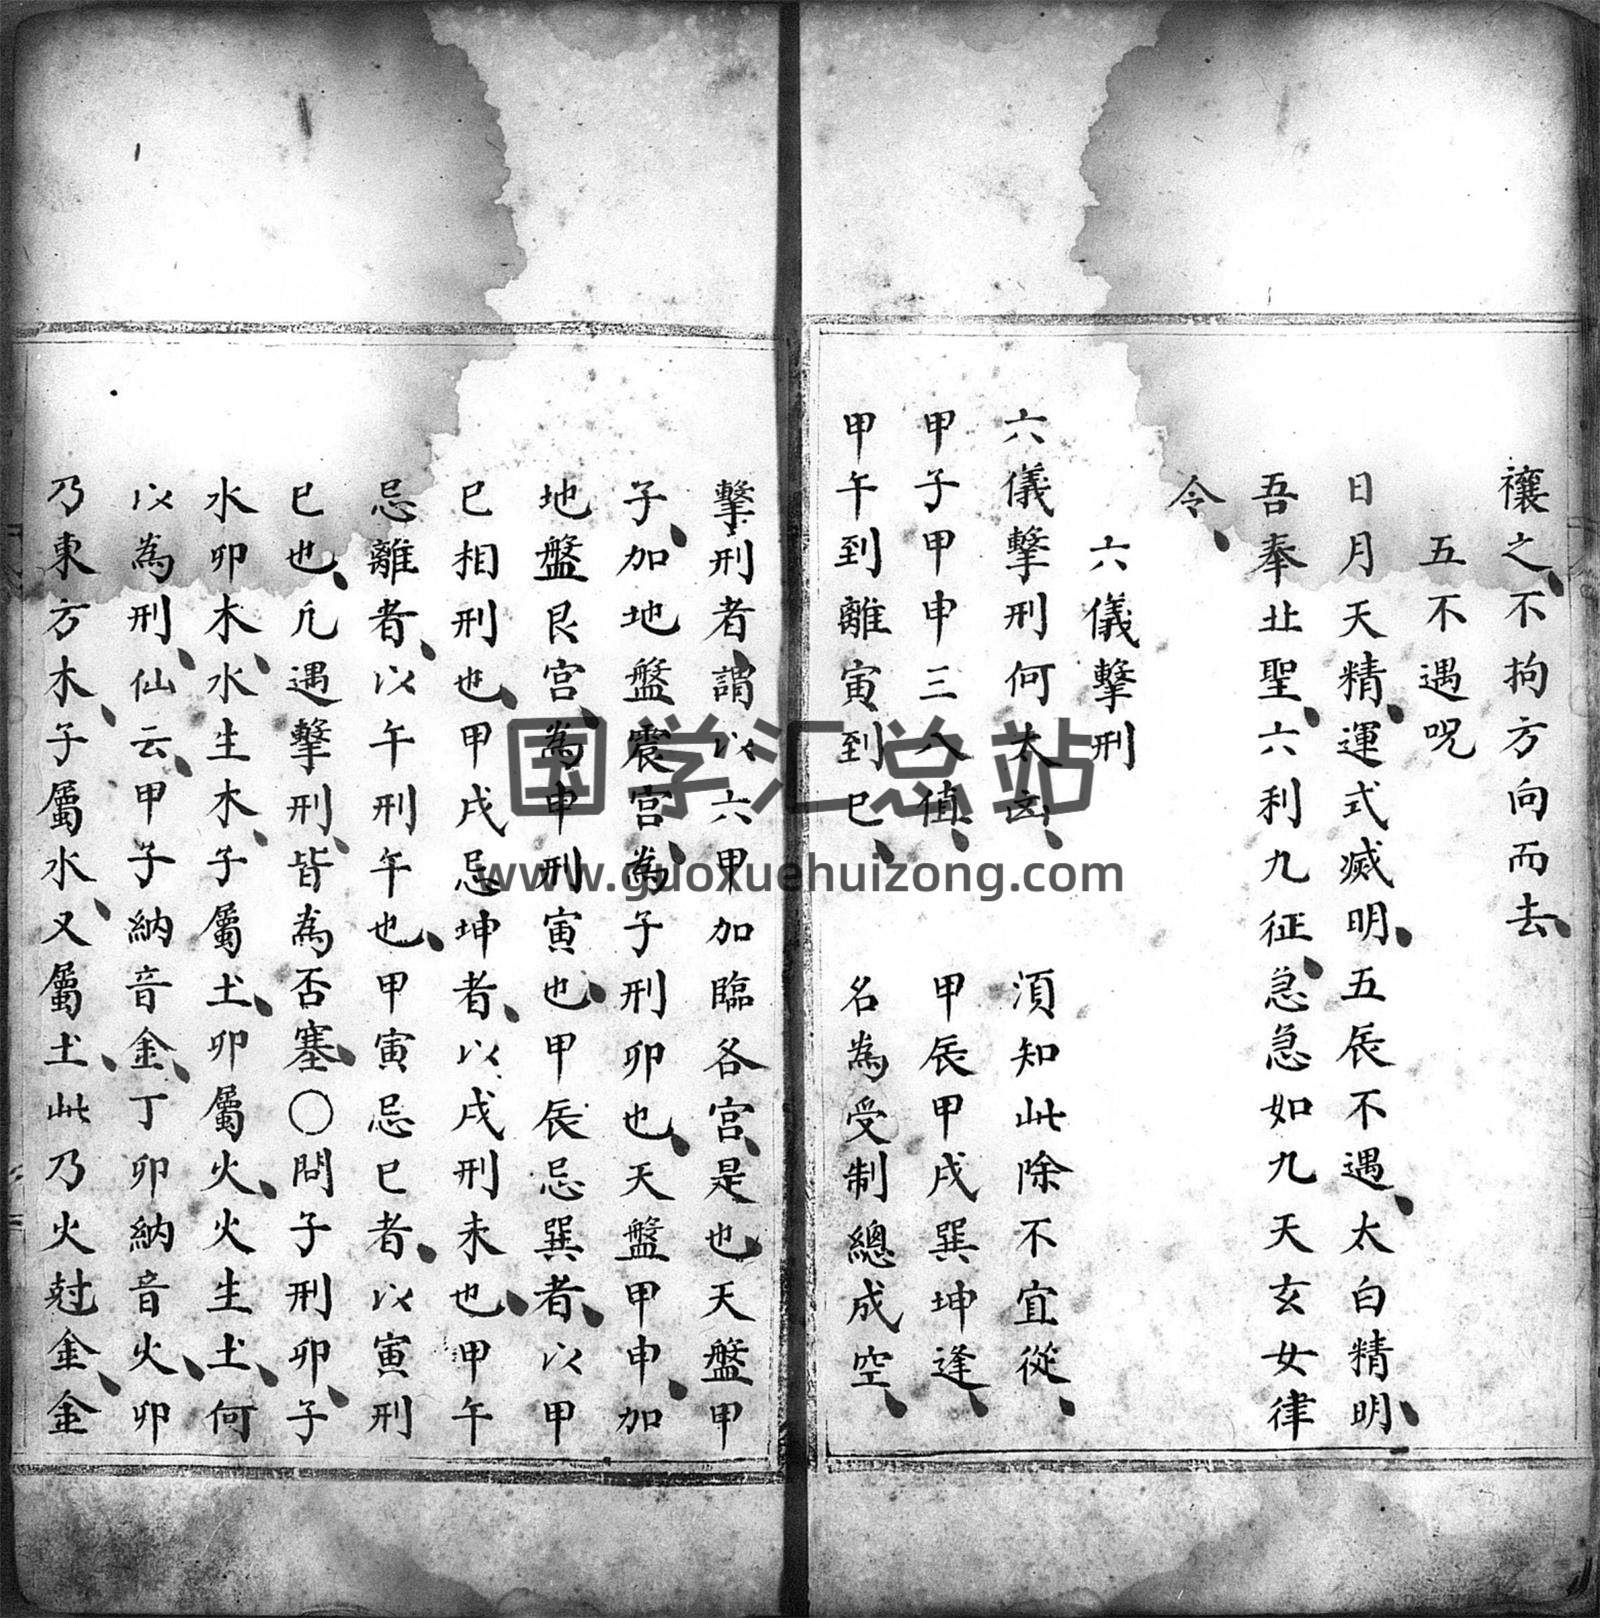 禳之不拘方向而去
五不遇呪
日月天精運式滅明五辰不遇太白精明
吾奉北聖六利九征急急如九天玄女律
令
六儀擊刑
六儀擊刑何太凶　須知此除不宜從
甲子甲申三八值　甲辰甲戌巽坤逢
甲午到離寅到巳　名為受制總成空
擊刑者謂以六甲加臨各宮是也天盤甲
子加地盤震宮為子刑卯也天盤甲申加
地盤艮宮為申刑寅也甲辰忌巽者以甲
巳相刑也甲戌忌坤者以戌刑未也甲午
忌離者以午刑午也甲寅忌巳者以寅刑
巳也凢遇擊刑皆為否塞○問子刑卯子
水卯木水生木子屬土卯屬火火生土何
以為刑仙云甲子納音金丁卯納音火卯
乃東方木子屬水又屬土此乃火尅金金
国学汇总站
www.guoxuehuizong.com